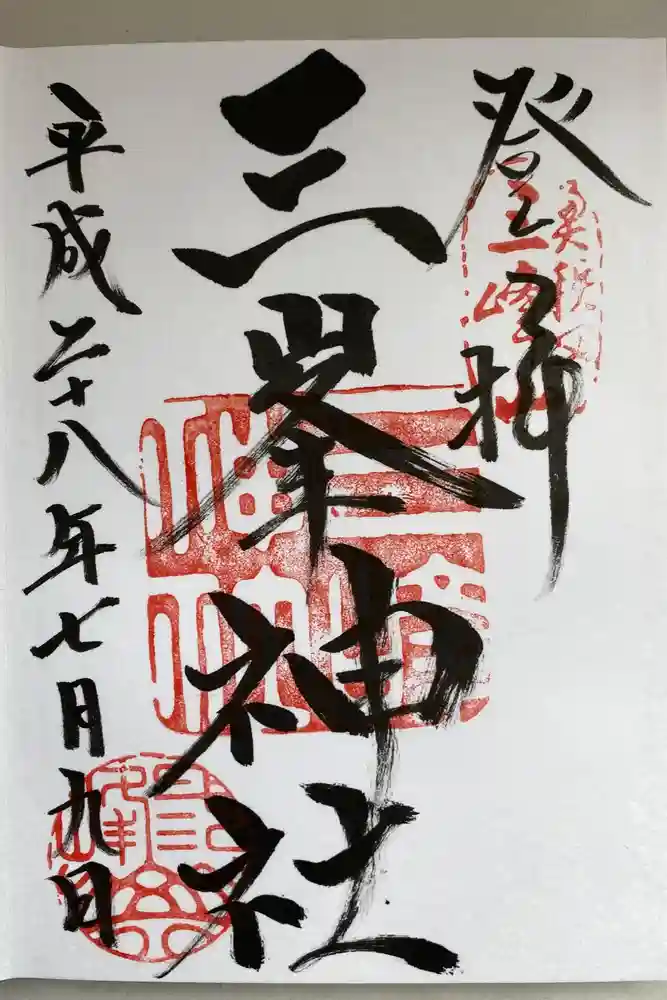 登拝
奥秩父
三峰山
三峯神社
三峯
神社
平成二十八年七月九日